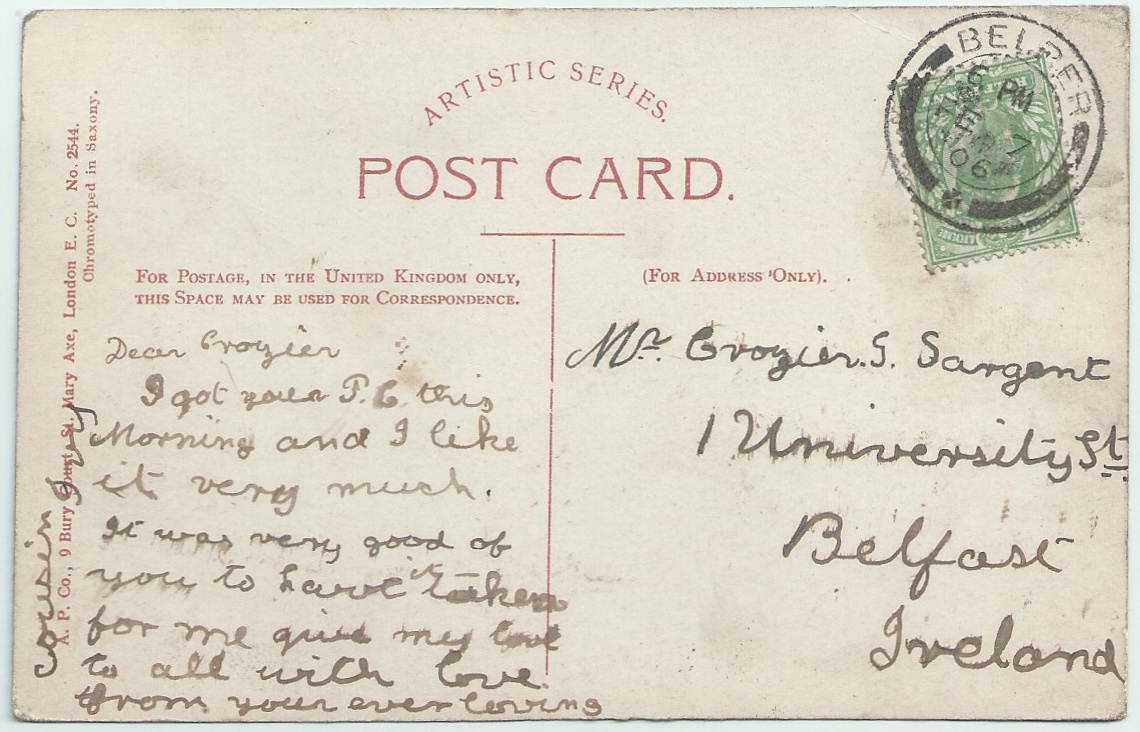 ARTISTIC SERIES.
POST CARD.
FOR POSTAGE, IN THE UNITED KINGDOM ONLY,
THIS SPACE MAY BE USED FOR CORRESPONDENCE.
(FOR ADDRESS ONLY).
A. P. Co., 9 Bury Court, St. Mary Axe, London E. C. No. 2544.
Chromotyped in Saxony.
BELPER
PM
7
06
Dear Crozier
I got your P.C. this
Morning and I like
it very much.
It was very good of
you to have it taken
for me give my love
to all with love
from your ever loving
Cousin
Mr. Crozier. S. Sargent
1 University St.
Belfast
Ireland